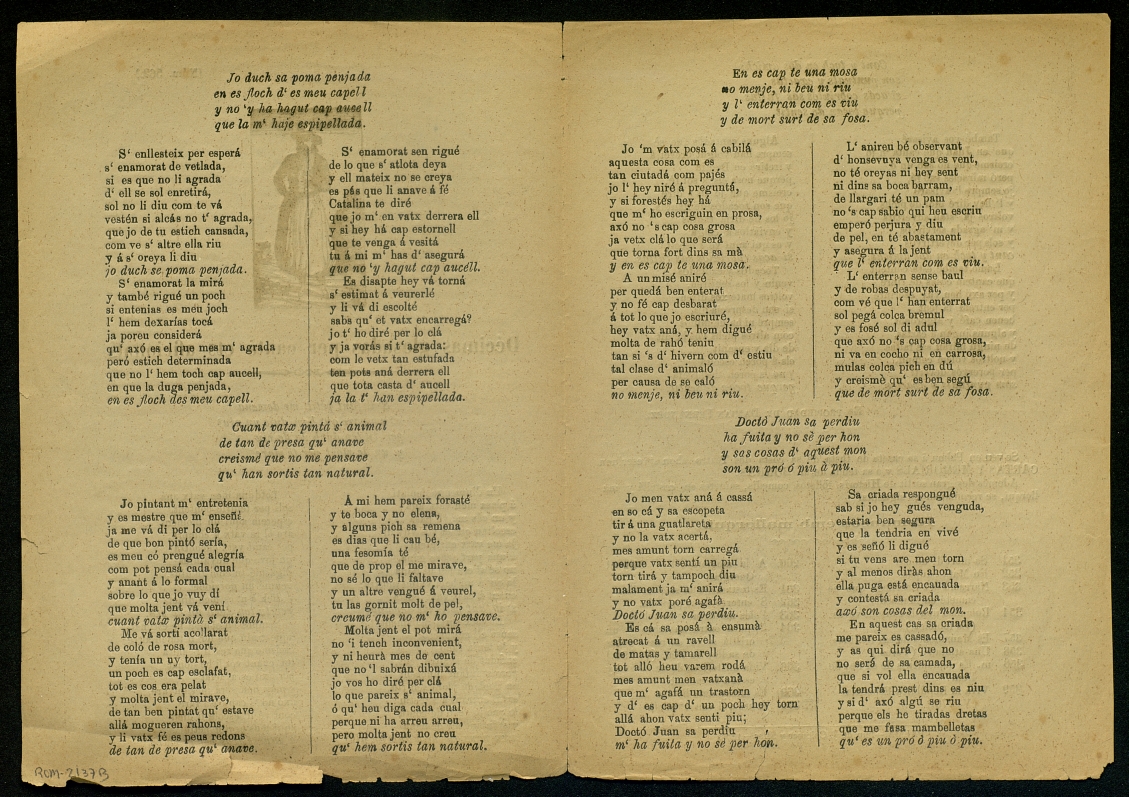 Jo duch sa poma penjada
en es floch d‘ es meu capell
y no ‘y ha hagut cap aucell
que la m‘ haje espipellada.
S‘ enllesteix per esperá
s‘ enamorat de vetlada,
si es que no li agrada
d‘ ell se sol enretirá,
sol no li diu com te vá
vestén si alcás no t‘ agrada,
que jo de tu estich cansada,
com ve s‘ altre ella riu
y á s‘ oreya li diu
jo duch se poma penjada.
S‘ enamorat la mirá
y també rigué un poch
si entenias es meu joch
l‘ hem dexarías tocá
ja poreu considerá
qu‘ axó es el que mes m‘ agrada
peró estich determinada
que no l‘ hem toch cap aucell,
en que la duga penjada,
en es floch des meu capell.
S‘ enamorat sen rigué
de lo que s‘ atlota deya
y ell mateix no se creya
es pás que li anave á fé
Catalina te diré
que jo m‘ en vatx derrera ell
y si hey há cap estornell
que te venga á vesitá
tu á mi m‘ has d‘ asegurá
que no ‘y hagut cap aucell.
Es disapte hey vá torná
s‘ estimat á veurerlé
y li vá di escolté
sabs qu‘ et vatx encarregá?
jo t‘ ho diré per lo clá
y ja vorás si t‘ agrada:
com le vetx tan estufada
ten pots aná derrera ell
que tota casta d‘ aucell
ja la t‘ han espipellada.
Cuant vatx pintá s‘ animal
de tan de presa qu‘ anave
creismé que no me pensave
qu‘ han sortis tan natural.
Jo pintant m‘ entretenia
y es mestre que m‘ enseñí
ja me vá di per lo clá
de que bon pintó sería,
es meu có prengué alegría
com pot pensá cada cual
y anant á lo formal
sobre lo que jo vuy dí
que molta jent vá vení
cuant vatx pintà s‘ animal.
Me vá sortí acollarat
de coló de rosa mort,
y tenía un uy tort,
un poch es cap esclafat,
tot es cos era pelat
y molta jent el mirave,
de tan ben pintat qu‘ estave
allá mogueren rahons,
y li vatx fé es peus redons
de tan de presa qu‘ anave.
A mi hem pareix forasté
y te boca y no elena,
y alguns pich sa remena
es dias que li cau bé,
una fesomía té
que de prop el me mirave,
no sé lo que li faltave
y un altre vengué á veurel,
tu las gornit molt de pel,
creumé que no m‘ ho pensave.
Molta jent el pot mirá
no ‘i tench inconvenient,
y ni heurà mes de cent
que no ‘l sabrán dibuixá
jo vos ho diré per clá
lo que pareix s‘ animal,
ó qu‘ heu diga cada cual
perque ni ha arreu arreu,
pero molta jent no creu
qu‘ hem sortis tan natural.
En es cap te una mosa
no menje, ni beu ni riu
y l‘ enterran com es viu
y de mort surt de sa fosa.
Jo ‘m vatx posá á cabilá
aquesta cosa com es
tan ciutadá com pajés
jo l‘ hey niré á preguntá,
y si forestés hey há
que m‘ ho escriguin en prosa,
axó no ‘s cap cosa grosa
ja vetx clá lo que será
que torna fort dins sa mà
y en es cap te una mosa.
A un misé aniré
per quedá ben enterat
y no fé cap desbarat
á tot lo que jo escriuré,
hey vatx aná, y hem digué
molta de rahó teniu
tan si ‘s d‘ hivern com d‘ estiu
tal clase d‘ animaló
per causa de se caló
no menje, ni beu ni riu.
L‘ anireu bé observant
d‘ honsevuya venga es vent,
no té oreyas ni hey sent
ni dins sa boca barram,
de llargari té un pam
no ‘s cap sabio qui heu escriu
emperó perjura y diu
de pel, en té abastament
y asegura á la jent
que l‘ enterran com es viu.
L‘ enterran sense baul
y de robas despuyat,
com vé que l‘ han enterrat
sol pegá colca bremul
y es fosé sol di adul
que axó no ‘s cap cosa grosa,
ni va en cocho ni en carrosa,
mulas colca pich en dú
y creismè qu‘ es ben segú
que de mort surt de sa fosa.
Doctó Juan sa perdiu
ha fuita y no sè per hon
y sas cosas d‘ aquest mon
son un pró ó piu à piu.
Jo men vatx aná á cassá
en so cá y sa escopeta
tir á una guatlareta
y no la vatx acertá,
mes amunt torn carregá
perque vatx sentí un piu
torn tirá y tampoch diu
malament ja m‘ anirá
y no vatx poré agafà
Doctó Juan sa perdiu.
Es cá sa posà à ensumà
atrecat á un ravell
de matas y tamarell
tot alló heu varem rodá
mes amunt men vatxanà
que m‘ agafá un trastorn
y d‘ es cap d‘ un poch hey torn
allá ahon vatx senti piu;
Doctó Juan sa perdiu
m‘ ha fuita y no sè per hon.
Sa criada respongué
sab si jo hey gués venguda,
estaria ben segura
que la tendria en vivé
y es señó li digué
si tu vens are men torn
y al menos diràs ahon
ella puga está encauada
y contestá sa criada
axó son cosas del mon.
En aquest cas sa criada
me pareix es cassadó,
y as qui dirá que no
no será de sa camada,
que si vol ella encauada
la tendrá prest dins es niu
y si d‘ axó algú se riu
perque els he tiradas dretas
que me fasa mambelletas
qu‘ es un pró ò piu ò piu.
RCM-2137B